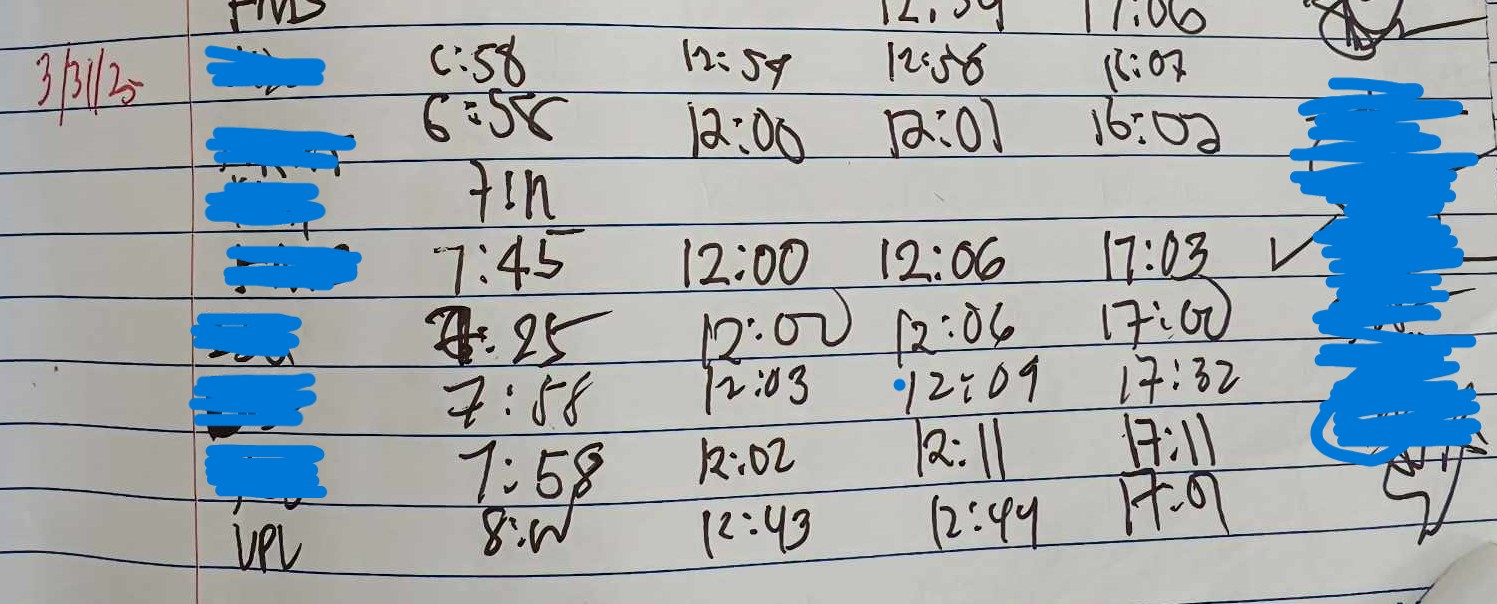 12:59 17:06
3/31/25 6:58 12:54 12:56 16:07
6:58 12:00 12:01 16:02
7:45 12:00 12:06 17:03
25 12:00 12:06 17:00
7:58 12:03 12:09 17:32
7:58 12:02 12:11 17:11
VPL 12:43 12:44 17:01